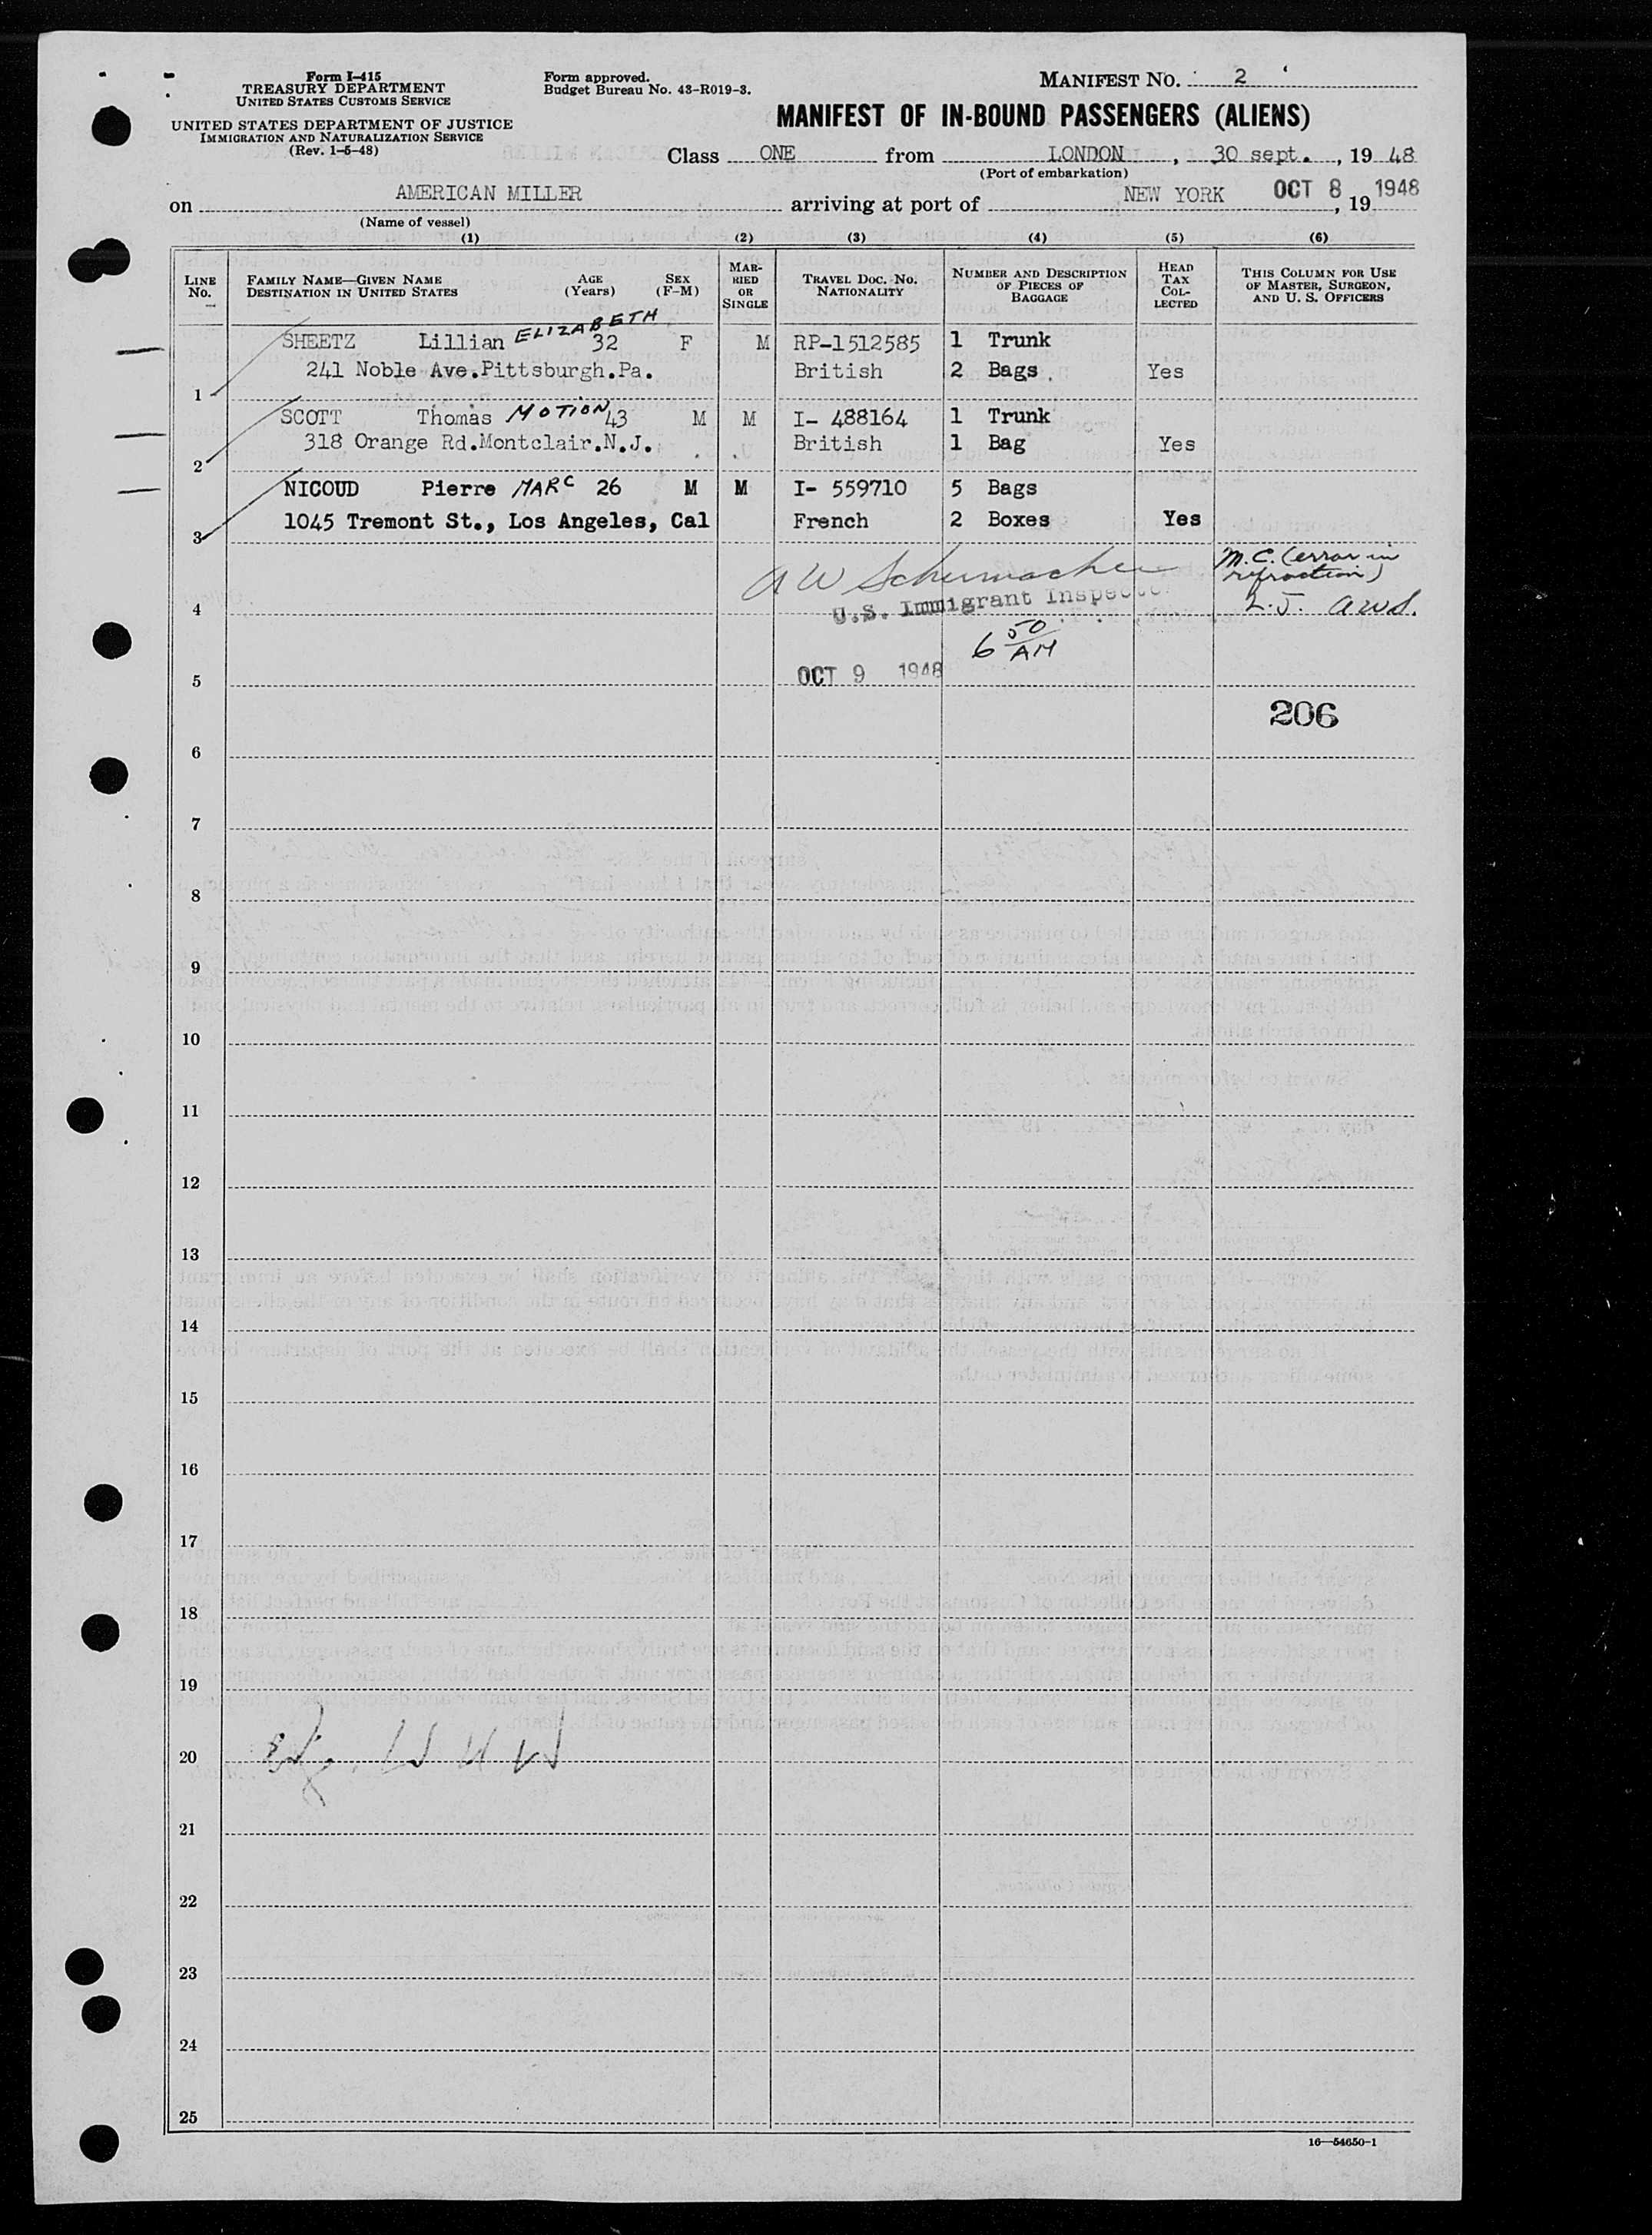 Form I-415
TREASURY DEPARTMENT
UNITED STATES CUSTOMS SERVICE
UNITED STATES DEPARTMENT OF JUSTICE
IMMIGRATION AND NATURALIZATION SERVICE
(Rev. 1-5-48)
Form approved.
Budget Bureau No. 43-R019-3.
MANIFEST NO. 2
MANIFEST OF IN-BOUND PASSENGERS (ALIENS)
Class ONE from LONDON, 30 sept., 19 48
(Port of embarkation)
on AMERICAN MILLER arriving at port of NEW YORK OCT 8, 19 1948
(Name of vessel)
(1) (2) (3) (4) (5) (6)
LINE No.
FAMILY NAME—GIVEN NAME AGE SEX
DESTINATION IN UNITED STATES (Years) (F-M)
MAR-
RIED
OR
SINGLE
TRAVEL DOC. NO.
NATIONALITY
NUMBER AND DESCRIPTION
OF PIECES OF
BAGGAGE
HEAD
TAX
COL-
LECTED
THIS COLUMN FOR USE
OF MASTER, SURGEON,
AND U. S. OFFICERS
SHEETZ Lillian ELIZABETH 32 F M RP-1512585 1 Trunk
241 Noble Ave.Pittsburgh.Pa. British 2 Bags. Yes
1
SCOTT Thomas MOTION 43 M M I- 488164 1 Trunk
318 Orange Rd.Montclair.N.J. British 1 Bag Yes
2
NICOUD Pierre MARC 26 M M I- 559710 5 Bags
1045 Tremont St., Los Angeles, Cal French 2 Boxes Yes
3
A W Schumacher
M.C. (error in
refraction)
4 U.S. Immigrant Inspector L.J. AWS.
6 50 AM
5 OCT 9 1948
206
6
7
8
9
10
11
12
13
14
15
16
17
18
19
20
21
22
23
24
25
16—54650-1